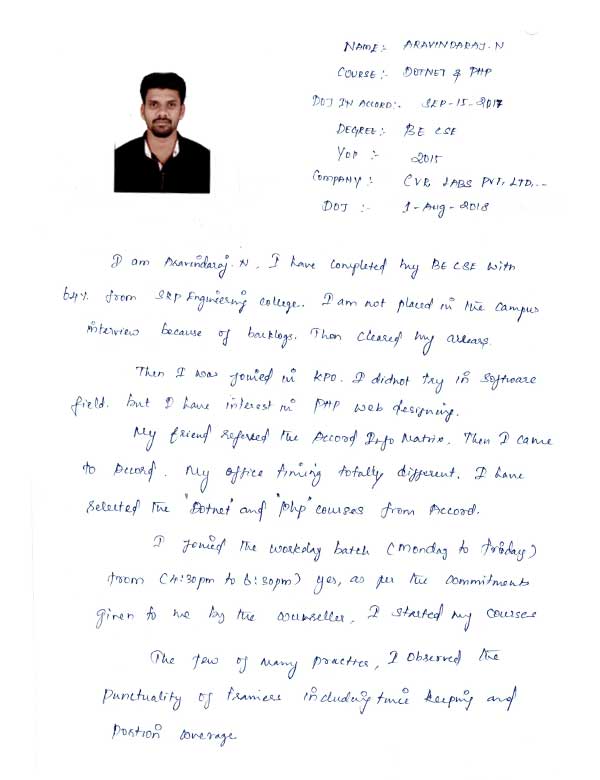 NAME:- ARAVINDARAJ.N
COURSE:- DOTNET & PHP
DOJ IN ACCORD:- SEP-15-2017
DEGREE:- BE CSE
YOP :- 2015
COMPANY:- CVR LABS PVT. LTD.,-
DOJ :- 1-Aug-2018
I am Aravindaraj.N, I have completed my BE CSE with
64% from SKP Engineering college. I am not placed in the campus
interview because of backlogs. Then cleared my arrears.
Then I was joined in KPO. I didnot try in Software
field. but I have interest in PHP web designing.
My friend referred the Accord Info Matrix. Then I came
to Accord. My office timing totally different. I have
selected the "Dotnet" and "php" courses from Accord.
I joined the workday batch (Monday to friday)
from (4:30pm to 6:30pm) yes, as per the commitments
given to me by the counseller, I started my courses
The few of many practice, I observed the
punctuality of trainees including time keeping and
portion coverage